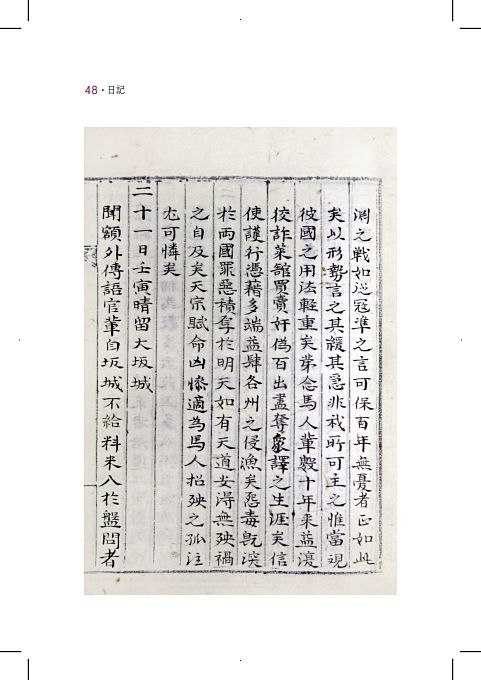 48 · 日記
淵之戰如逆冦準之言可保百年無憂者正如此
矣以形勢言之其緩其急非我所可主之惟當觀
彼國之用法輕重矣第念馬人輩毀十年來益濅
狡詐萊舘買賣奸偽百出盡奪象譯之生涯矣信
使護行憑藉多端益肆各州之侵漁矣惡毒旣深
於兩國罪惡積奪於明天如有天道安淂無殃禍
之自及矣天宗賦命凶慘適為馬人招殃之孤注
尤可憐矣
二十一日壬寅晴留大坂城
聞額外傳語官輩自坂城不給料米八於盤問者